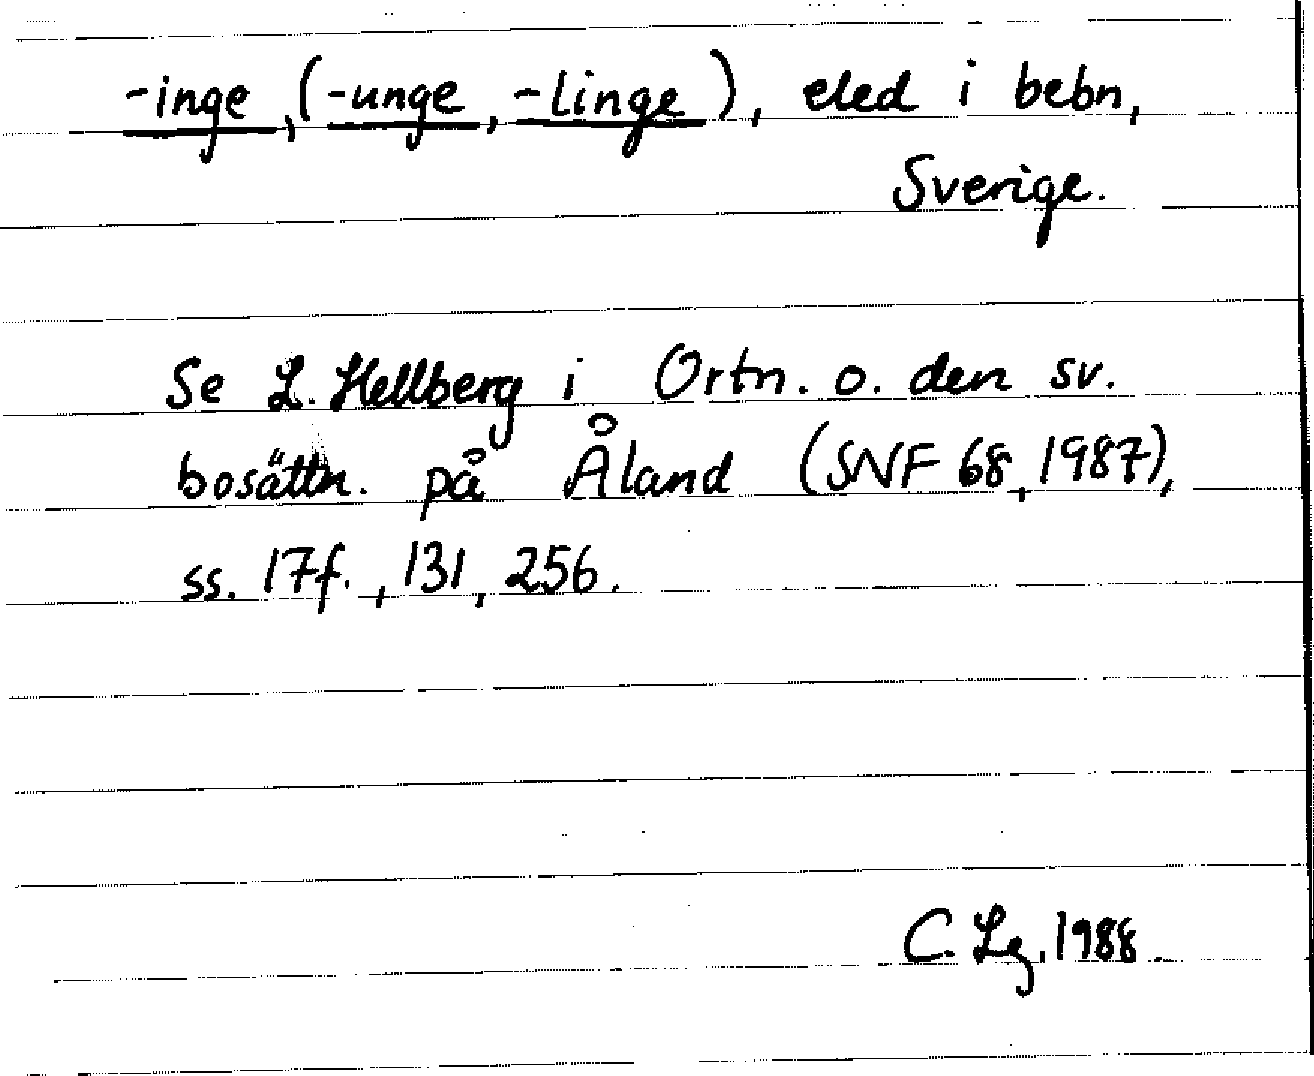 -inge, (-unge, -linge), eled i bebn,
Sverige.
Se L. Hellberg i Ortn. o. den sv.
bosättn. på Åland (SNF 68, 1987),
ss. 17f., 131, 256.
C. Lg, 1988